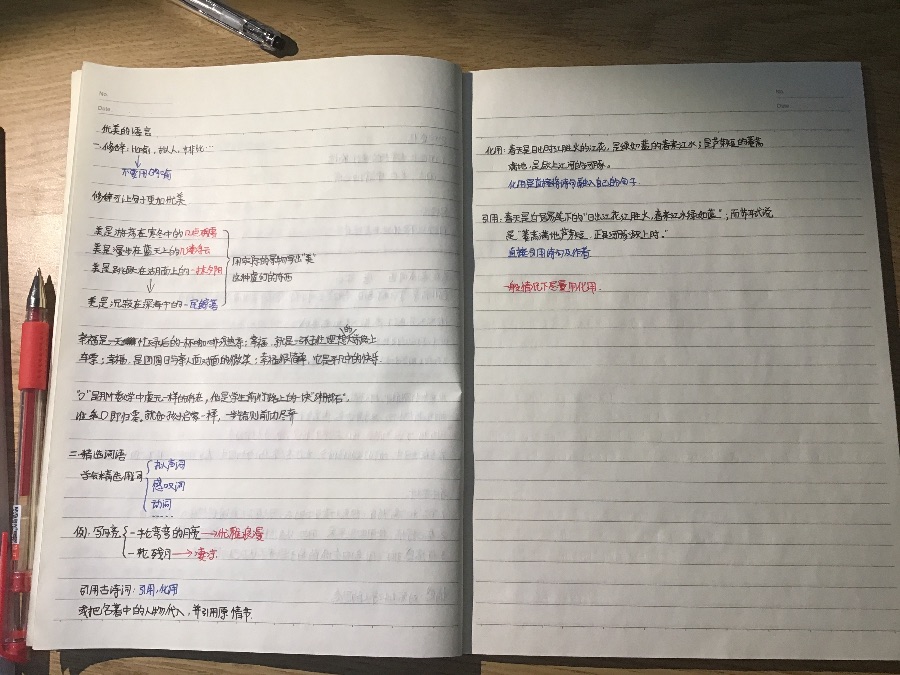 No.
Date
优美的语言
一.修辞:比喻,拟人,排比…
不要用明喻
修辞可让句子更加优美
美是游荡在寒冬中的几点梅
美是漫步在蓝天上的几缕浮云
美是跳跃在湖面上的一抹夕阳
美是沉寂在深海中的一尾
用实际的事物写出"美"
这种虚幻的东西
幸福是忙碌后的一杯咖啡 幸福,就是
幸福,是团圆日与家人面对面的微笑;幸福很简单,它是平凡中的快乐.
"0"是用于数学中虚无一样的存在,也是学生前行路上的一块"绊脚石".
乘0即归零.就 一样,一步错则前功尽弃
二.精选词语
学会精选用词
拟声词
感叹词
动词
……
例:写月亮
一轮弯弯的月亮→优雅浪漫
一轮残月→凄凉
引用古诗词:引用,化用
或把名著中的人物代入,并引用原情节.
No.
Date
化用:春天是日出时红胜火的江花,是绿如蓝的春来江水;是芦芽短的蒌蒿
满地,是欲上江河的河豚.
化用是直接将诗句融入自己的句子.
引用:春天是白居易笔下的"日出江花红胜火,春来江水绿如蓝";而苏轼说
是"蒌蒿满地芦芽短,正是河豚欲上时."
直接引用诗句及作者
一般情况下尽量用化用.